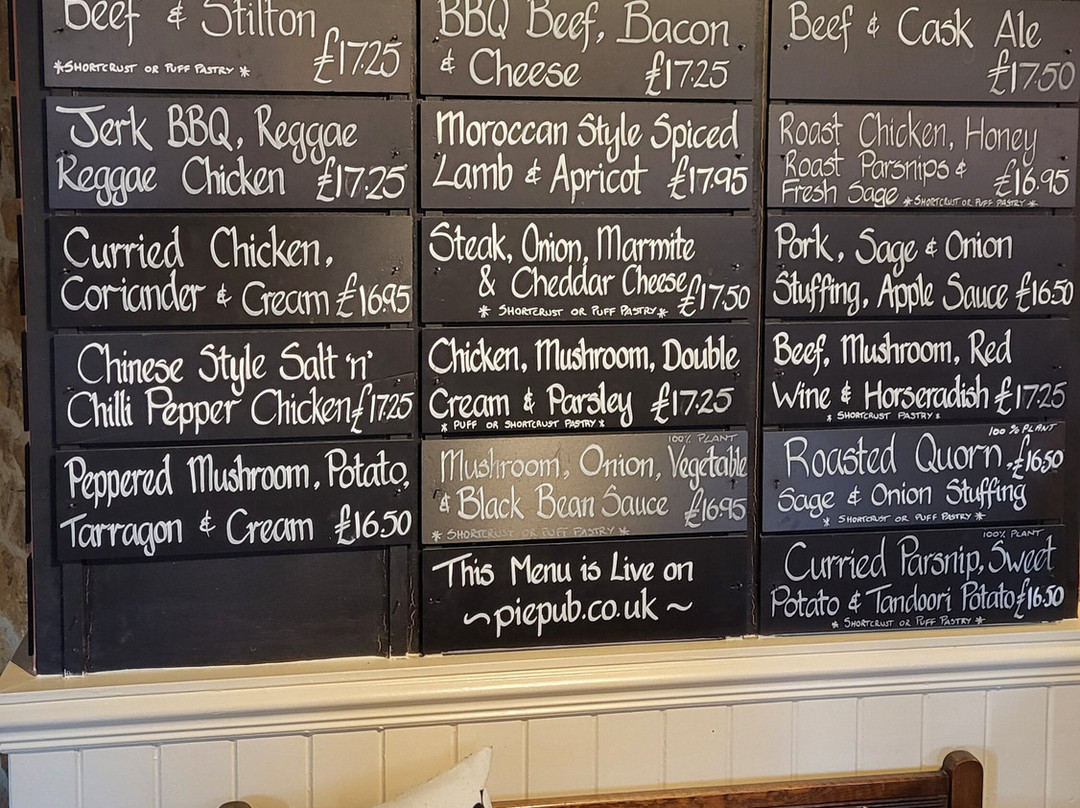 Beef & Stilton
£17.25
*SHORTCRUST OR PUFF PASTRY*
Jerk BBQ, Reggae
Reggae Chicken £17.25
Curried Chicken,
Coriander & Cream £16.95
Chinese Style Salt 'n'
Chilli Pepper Chicken £17.25
Peppered Mushroom, Potato,
Tarragon & Cream £16.50
BBQ Beef, Bacon
& Cheese £17.25
Moroccan Style Spiced
Lamb & Apricot £17.95
Steak, Onion, Marmite
& Cheddar Cheese £17.50
*SHORTCRUST OR PUFF PASTRY*
Chicken, Mushroom, Double
Cream & Parsley £17.25
*PUFF OR SHORTCRUST PASTRY*
100% PLANT
Mushroom, Onion, Vegetable
& Black Bean Sauce £16.95
*SHORTCRUST OR PUFF PASTRY*
This Menu is Live on
~piepub.co.uk~
Beef & Cask Ale
£17.50
Roast Chicken, Honey
Roast Parsnips &
Fresh Sage £16.95
*SHORTCRUST OR PUFF PASTRY*
Pork, Sage & Onion
Stuffing, Apple Sauce £16.50
Beef, Mushroom, Red
Wine & Horseradish £17.25
*SHORTCRUST PASTRY*
100% PLANT
Roasted Quorn, £16.50
Sage & Onion Stuffing
*SHORTCRUST OR PUFF PASTRY*
100% PLANT
Curried Parsnip, Sweet
Potato & Tandoori Potato £16.50
*SHORTCRUST OR PUFF PASTRY*